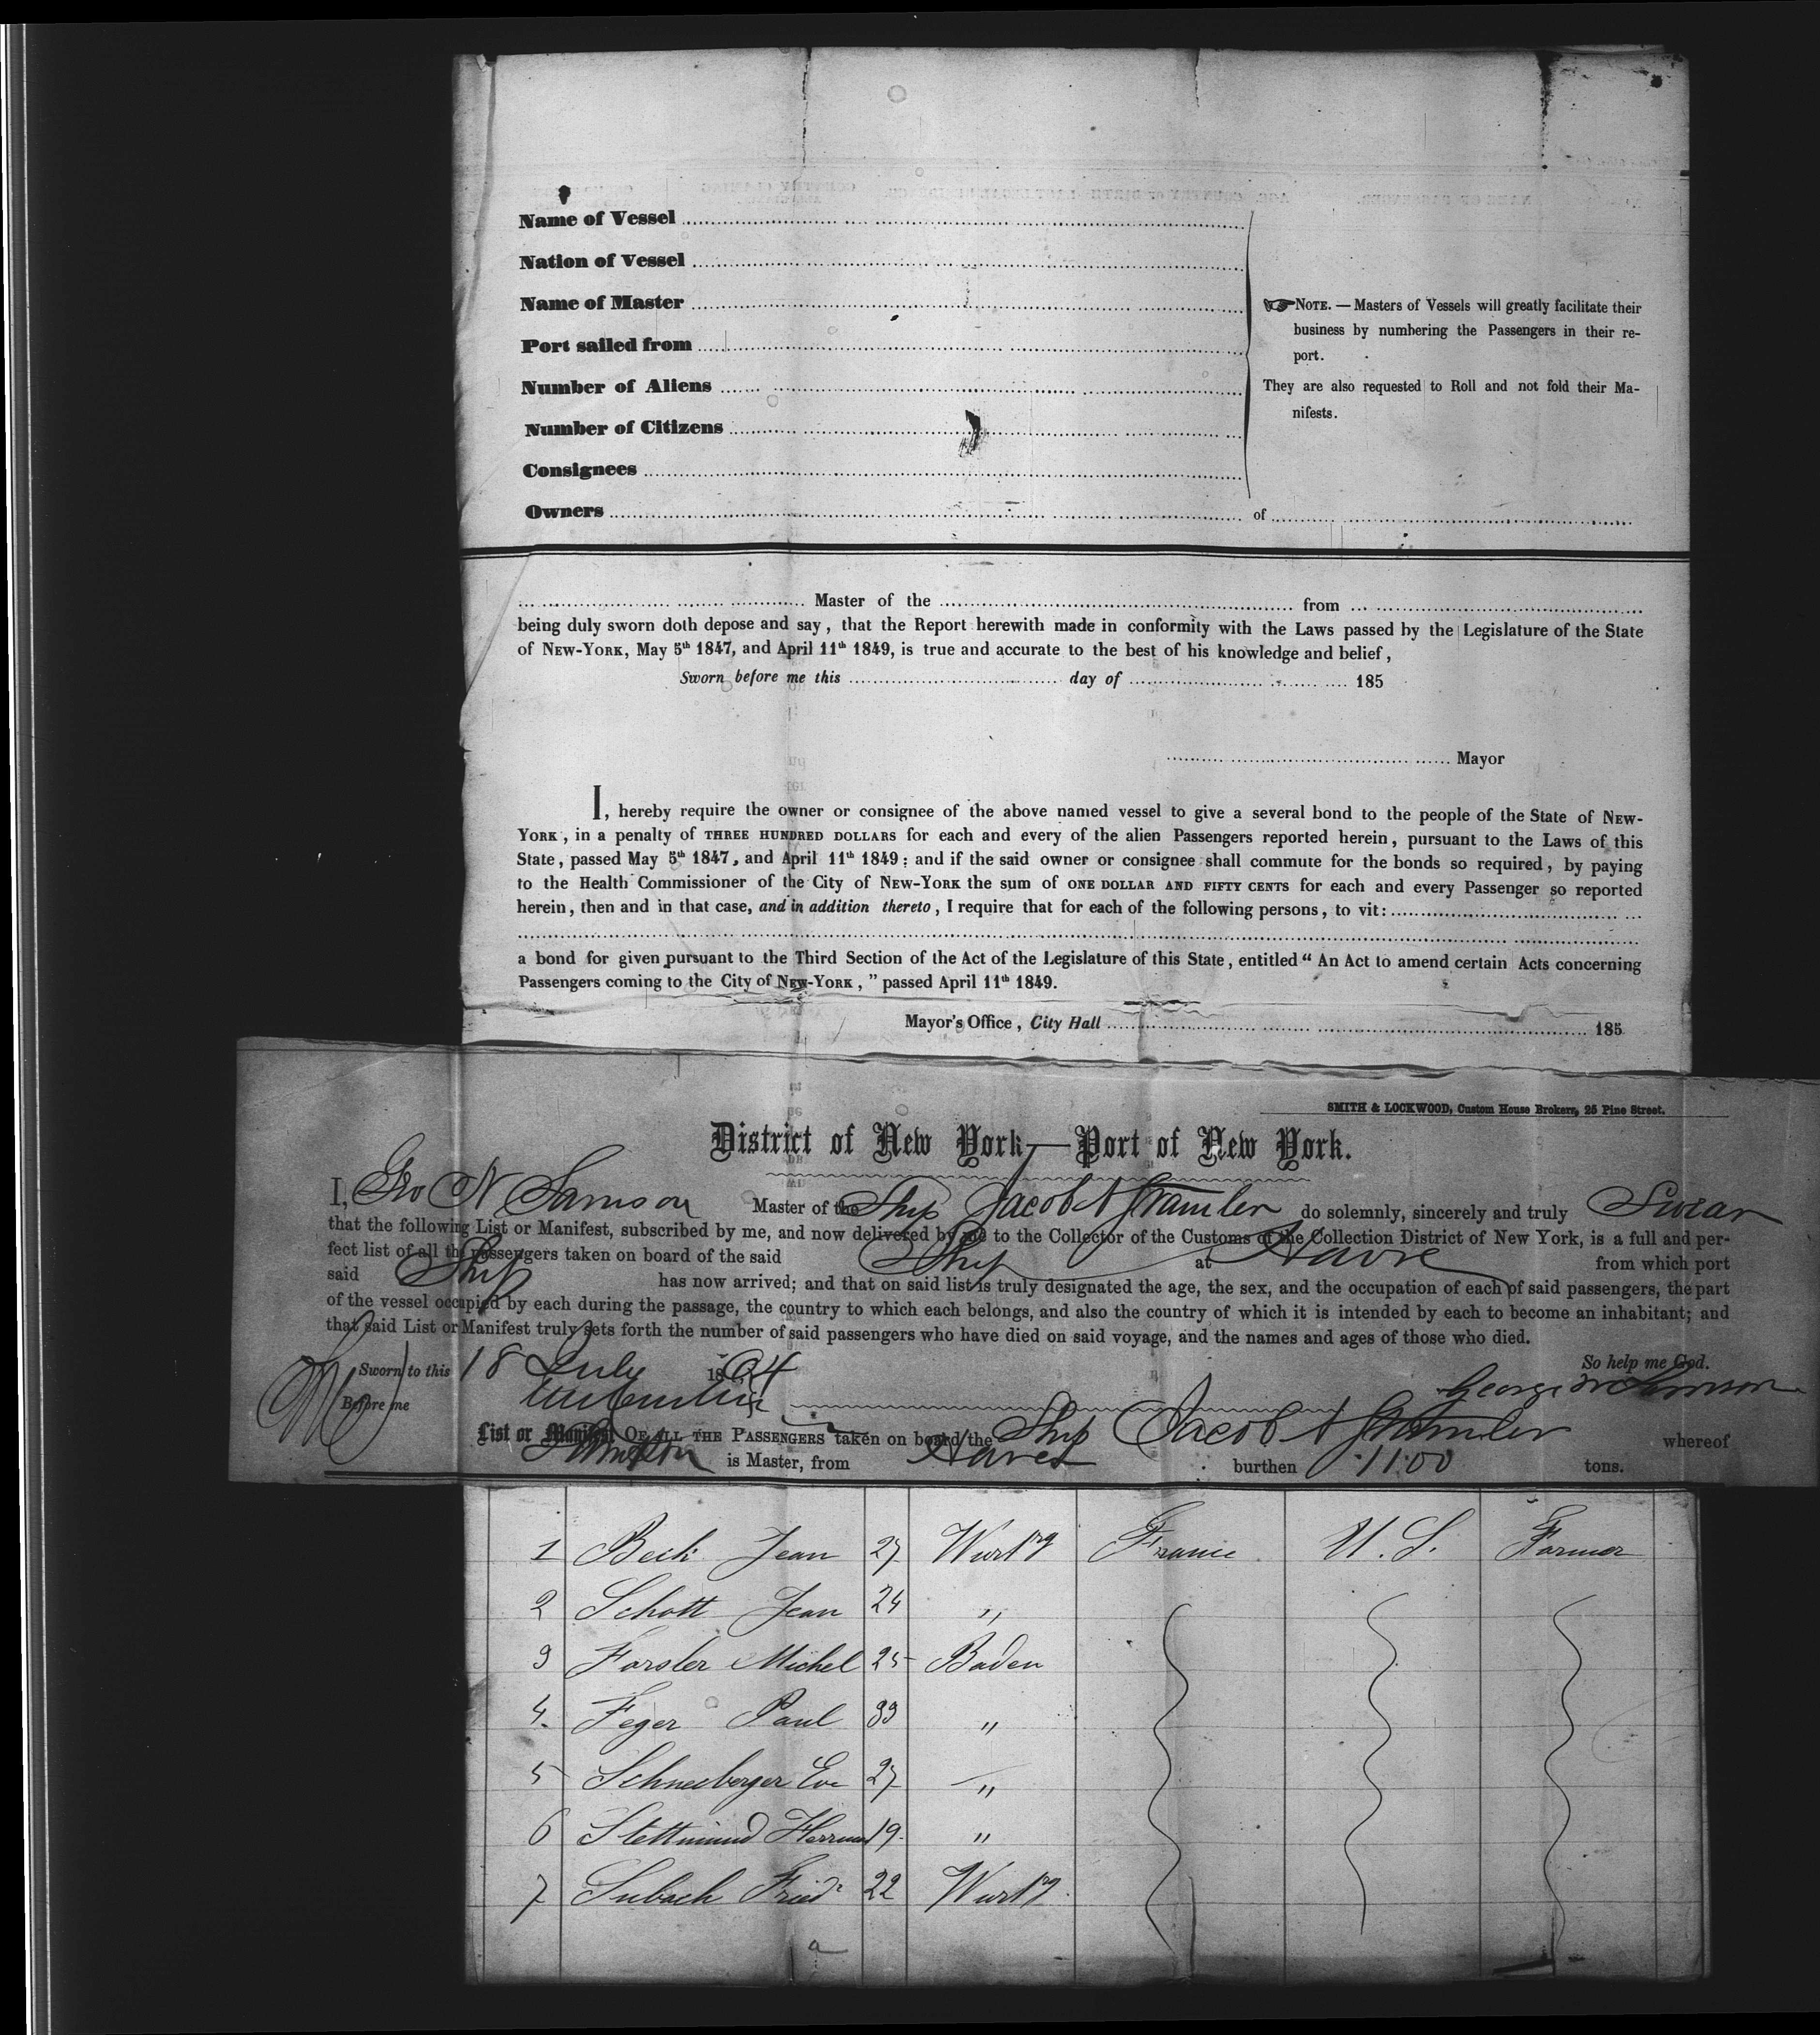 Name of Vessel
Nation of Vessel
Name of Master
Port sailed from
Number of Aliens
Number of Citizens
Consignees
Owners of
NOTE. — Masters of Vessels will greatly facilitate their
business by numbering the Passengers in their re-
port.
They are also requested to Roll and not fold their Ma-
nifests.
Master of the from
being duly sworn doth depose and say, that the Report herewith made in conformity with the Laws passed by the Legislature of the State
of NEW-YORK, May 5th 1847, and April 11th 1849, is true and accurate to the best of his knowledge and belief,
Sworn before me this day of 185
Mayor
I, hereby require the owner or consignee of the above named vessel to give a several bond to the people of the State of NEW-
YORK, in a penalty of THREE HUNDRED DOLLARS for each and every of the alien Passengers reported herein, pursuant to the Laws of this
State, passed May 5th 1847, and April 11th 1849; and if the said owner or consignee shall commute for the bonds so required, by paying
to the Health Commissioner of the City of NEW-YORK the sum of ONE DOLLAR AND FIFTY CENTS for each and every Passenger so reported
herein, then and in that case, and in addition thereto, I require that for each of the following persons, to vit:
a bond for given pursuant to the Third Section of the Act of the Legislature of this State, entitled “ An Act to amend certain Acts concerning
Passengers coming to the City of NEW-YORK, ” passed April 11th 1849.
Mayor's Office, City Hall 185
SMITH & LOCKWOOD, Custom House Brokers, 25 Pine Street.
District of New York—Port of New York.
I, Geo N Samson Master of the Ship Jacob A Stamler do solemnly, sincerely and truly Swear
that the following List or Manifest, subscribed by me, and now delivered by me to the Collector of the Customs of the Collection District of New York, is a full and per-
fect list of all the passengers taken on board of the said Ship at Havre from which port
said Ship has now arrived; and that on said list is truly designated the age, the sex, and the occupation of each of said passengers, the part
of the vessel occupied by each during the passage, the country to which each belongs, and also the country of which it is intended by each to become an inhabitant; and
that said List or Manifest truly sets forth the number of said passengers who have died on said voyage, and the names and ages of those who died.
Sworn to this 18 July 1864 So help me God.
Before me George N Samson
List or Manifest OF ALL THE PASSENGERS taken on board the Ship Jacob A Stamler whereof
is Master, from Havre burthen 1100 tons.
1 Beck Jean 27 Wurtbg France U. S. Farmer
2 Schott Jean 24 "
3 Forsler Michel 25 Baden
4. Feger Paul 33 "
5 Schneeberger Eve 27 "
6 Stettmund Herrman 19. "
7 Subach Friedr 22 Wurtbg.